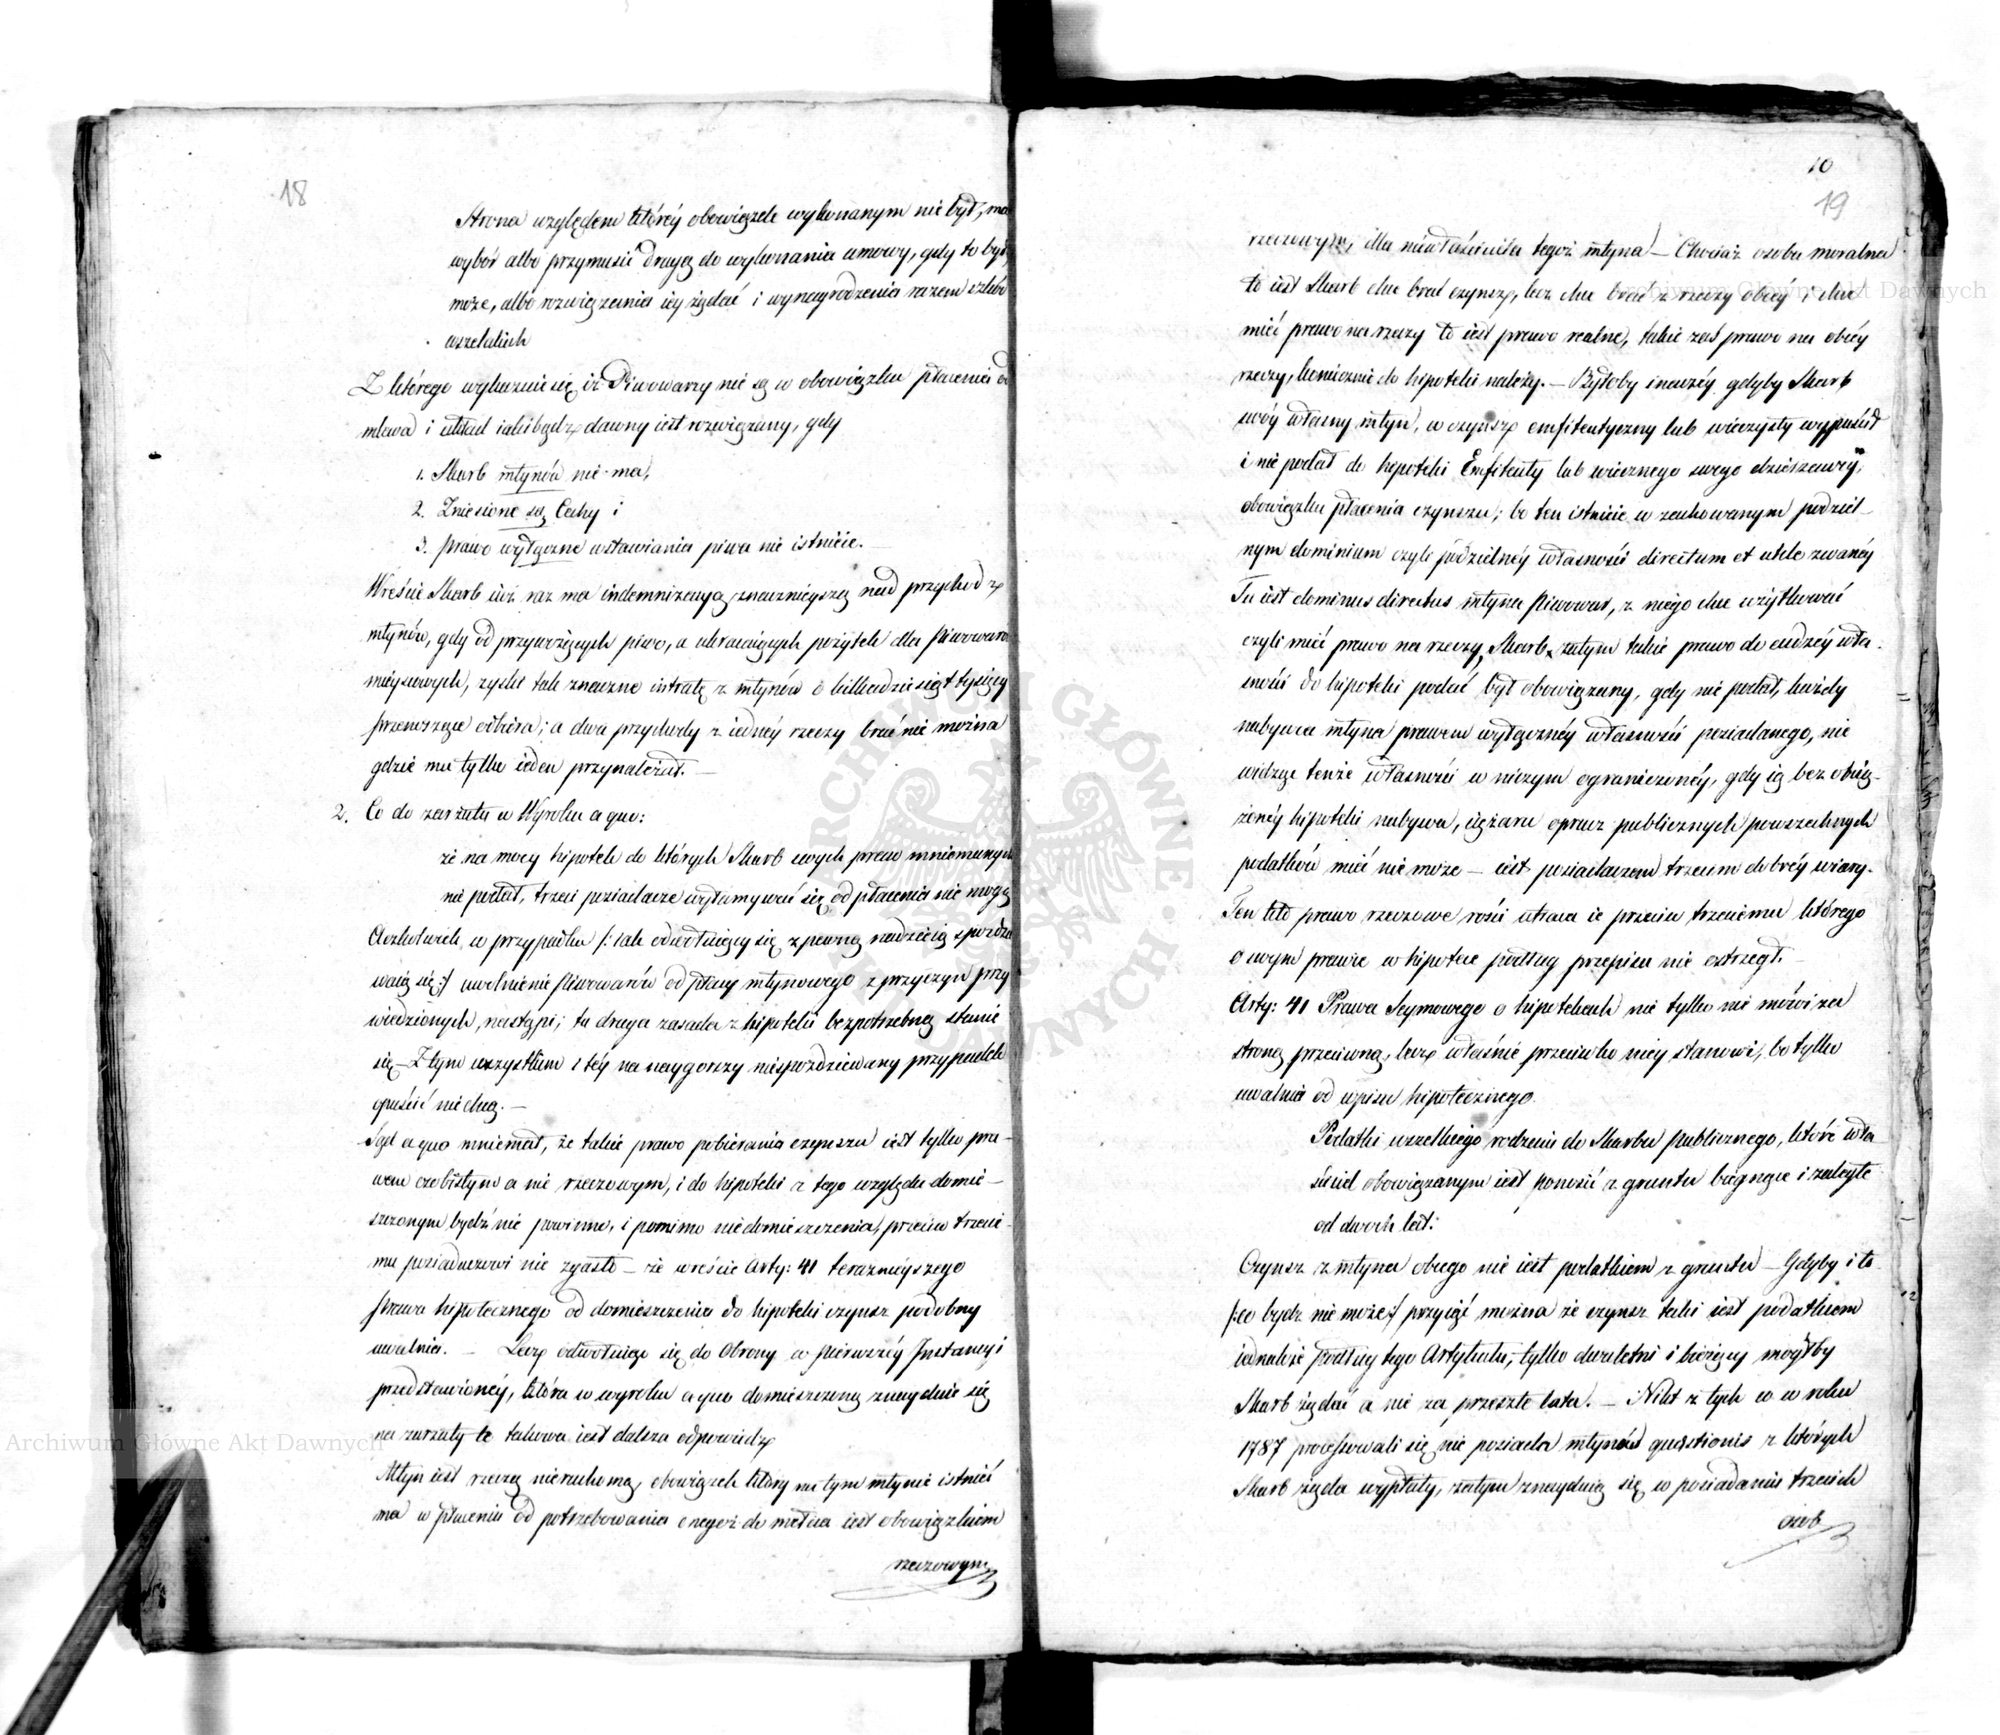 18
Strona względem któréy obowiązek wykonanym nie był, ma
wybór albo przymusić drugą do wykonania umowy, gdy to być
może, albo rozwiązania iéy żądać i wynagrodzenia razem szkód
wszelakich
Z którego wykazuie się iż Piwowarzy nie są w obowiązku płacenia od
mlewa i układ iakibądz dawny iest rozwiązany, gdy
1. Skarb młynów nie ma,
2. Zniesione są Cechy i
3. prawo wyłączne wstawiania piwa nie istnieie.
Wreście Skarb iuż raz ma indemnizacyą znacznieyszą nad przychodz
młynów, gdy od przywożących piwo, a ukracaiących pożytek dla piwowarów
mieyscowych, zyskał tak znaczne intratę z młynów o kilkadziesiąt tysięcy
przenoszące odbiera; a dwa przychody z iednéy rzeczy brać nie można
gdzie mu tylko ieden przynależał. —
2. Co do zarzutu w Wyroku a quo:
że na mocy hipotek do których Skarb swych praw mniemanych
nie podał, trzeci posiadacze wyłamywać się od płacenia nie mogą
Aczkolwiek, w przypadku /: iak odwołuiący się z pewną nadzieią spodzie
waią się :/ uwolnienie piwowarów od płacy młynowego z przyczyn przy
wiedzionych, nastąpi; ta druga zasada z hipotekii bezpotrzebną stanie
się — Z tym wszystkim i téy na naygorszy niespodziewany przypadek
opuścić nie chcą. —
Sąd a quo mniemał, że takie prawo pobierania czynszu iest tylko pra-
wem osobistym a nie rzeczowym, i do hipoteki z tego względu domie-
szczonym bydź nie powinno, i pomimo niedomieszczenia, przeciw trzecie-
mu posiadaczowi nie zgasło — że wreście Arty: 41 teraznieyszego
prawa hipotecznego od domieszczenia do hipoteki czynsz podobny
uwalnia. — Lecz odwołuiąc się do Obrony w pierwszéy Instancyi
przedstawionéy, która w wyroku a quo domieszczoną znayduie się
na zarzuty te takowa iest dalsza odpowiedz
Młyn iest rzeczą nieruchomą, obowiązek który na tym młynie istnieć
ma w płaceniu od potrzebowania onegoż do mełcia iest obowiązkiem
rzeczowym
10
19
rzeczowym, dla niewłaściciela tegoż młyna — Chociaż osoba moralna
to iest Skarb chce brać czynsz, lecz chce brać z rzeczy obcéy i chce
mieć prawo na rzeczy to iest prawo realne, takie zaś prawo na obcéy
rzeczy, koniecznie do hipoteki należy. — Byłoby inaczéy gdyby Skarb
swóy własny młyn, w czynsz emfiteutyczny lub wieczysty wypuścił
i nie podał do hipoteki Emfiteuty lub wiecznego swego dzierzawcy,
obowiązku płacenia czynszu; bo ten istnieie w zachowanym podziel-
nym dominium czyli podzielnéy własności directum et utile zwanéy
Tu iest dominus directus młyna piwowar, z niego chce użytkować
czyli mieć prawo na rzeczy Skarb, zatym takie prawo do cudzéy wła-
sności do hipoteki podać był obowiązany, gdy nie podał, każdy
nabywca młyna prawem wyłącznéy własności posiadanego, nie
widząc tenże własności w niczym ograniczonéy, gdy ią bez obcią-
żenéy hipoteki nabywa, ciężaru oprócz publicznych powszechnych
podatków mieć nie może — iest posiadaczem trzecim dobréy wiary.
Ten kto prawo rzeczowe rości utraca ie przeciw trzeciemu którego
o swym prawie w hipotece podług przepisu nie ostrzegł. —
Arty: 41 Prawa Seymowego o hipotekach nie tylko nie mówi za
stroną przeciwną, lecz właśnie przeciwko niey stanowi, bo tylko
uwalnia od wpisu hipotecznego
Podatki wszelkiego rodzaiu do Skarbu publicznego, które wła-
ściciel obowiązanym iest ponosić z gruntu bieżące i zaległe
od dwóch lat:
Czynsz z młyna obcego nie iest podatkiem z gruntu — Gdyby i to
/: co bydz nie może :/ przyiąć można że czynsz taki iest podatkiem
iednakże podług tego Artykułu, tylko dwuletni i bieżący mógłby
Skarb żądać a nie za przeszłe lata. — Nikt z tych co w roku
1787 processowali się nie posiada młynów questionis z których
Skarb żąda wypłaty, zatym znayduią się w posiadaniu trzecich
osób